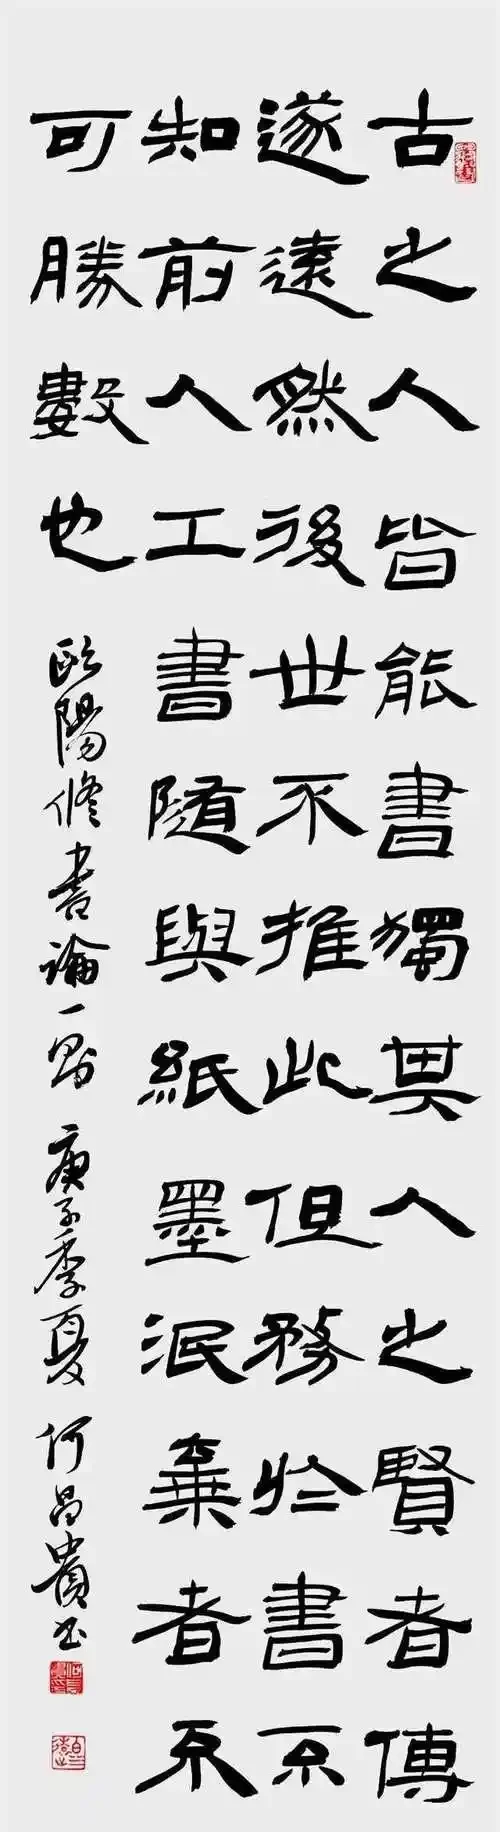 古之人皆能書獨其人之賢者傳
遂遠然後世不推此但務於書不
知前人工書隨與紙墨泯棄者不
可勝數也
歐陽修書論一則 庚子季夏 何昌貴書